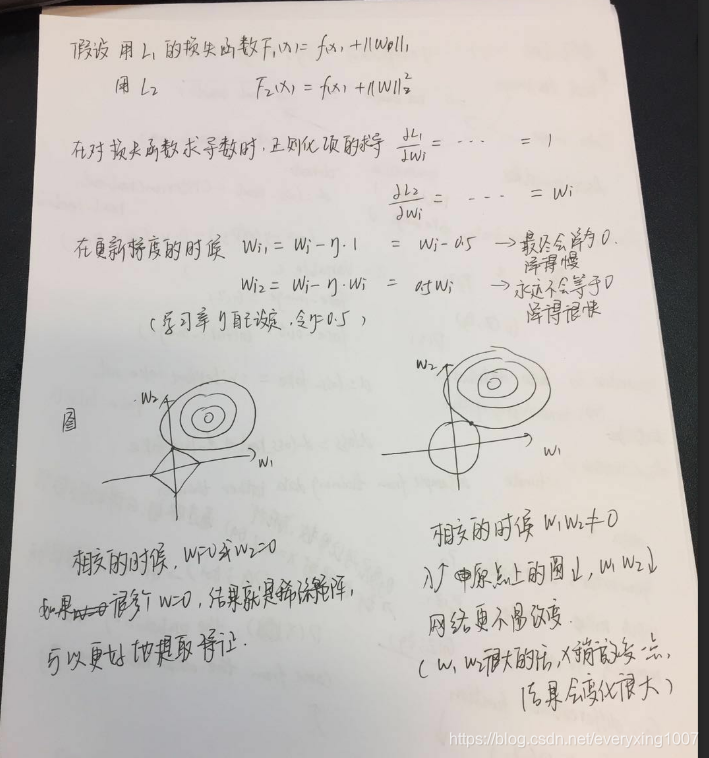 假设用L1的损失函数F1(x) = f(x) + ||W||1
用L2 F2(x) = f(x) + ||W||2²
在对损失函数求导数时,正则化项的求导 ∂L1/∂Wi = ··· = 1
∂L2/∂Wi = ··· = Wi
在更新梯度的时候 Wi1 = Wi - η·1 = Wi - 0.5 → 最终会降为0.
降得慢
Wi2 = Wi - η·Wi = 0.5Wi → 永远不会等于0
降得很快
(学习率η自己设定,令η=0.5)
图
W2
W1
W2
W1
相交的时候,W1=0或W2=0
如果很多个W=0,结果就是稀疏矩阵,
可以更好地提取特征.
相交的时候 W1W2≠0
λ↑ 原点上的圆↓, W1 W2↓
网络更不易改变.
(W1 W2很大的话,x稍微变一点,
结果会变化很大)
https://blog.csdn.net/everyxing1007